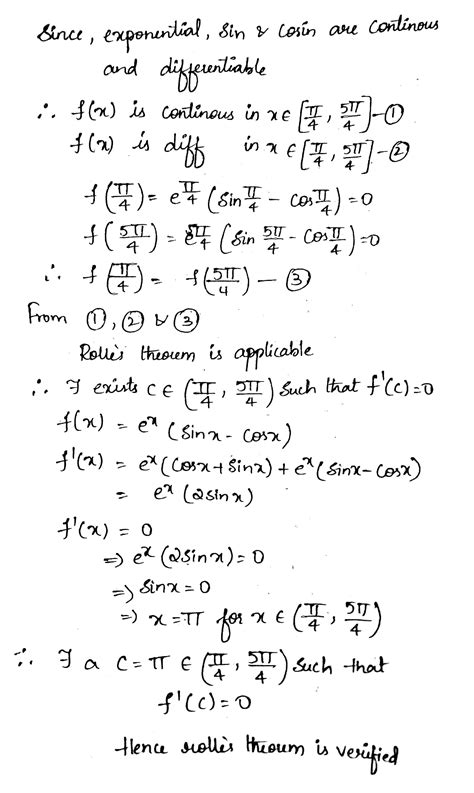 Since, exponential, sin & cosin are continous
and differentiable
∴ f(x) is continous in x ∈ [π/4, 5π/4] - ①
f(x) is diff in x ∈ [π/4, 5π/4] - ②
f(π/4) = e^π/4 (sin π/4 - cos π/4) = 0
f(5π/4) = e^5π/4 (sin 5π/4 - cos π/4) = 0
∴ f(π/4) = f(5π/4) - ③
From ①, ② & ③
Rolle's theorum is applicable
∴ ∃ exists c ∈ (π/4, 5π/4) such that f'(c) = 0
f(x) = e^x (sinx - cosx)
f'(x) = e^x (cosx + sinx) + e^x (sinx - cosx)
= e^x (2sinx)
f'(x) = 0
⇒ e^x (2sinx) = 0
⇒ sinx = 0
⇒ x = π for x ∈ (π/4, 5π/4)
∴ ∃ a c = π ∈ (π/4, 5π/4) such that
f'(c) = 0
Hence rolle's theorum is verified